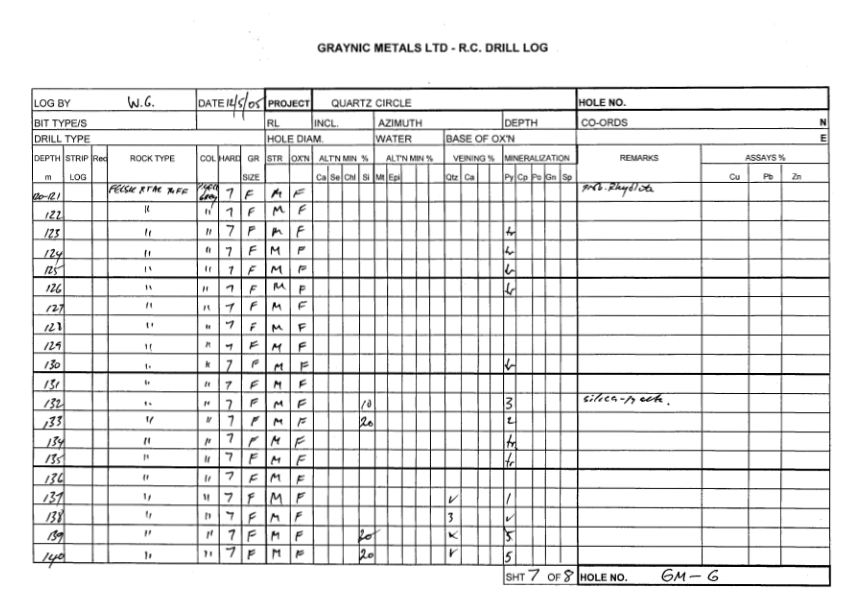 GRAYNIC METALS LTD - R.C. DRILL LOG
LOG BY W.G. DATE 12/5/05 PROJECT QUARTZ CIRCLE HOLE NO.
BIT TYPE/S RL INCL. AZIMUTH DEPTH CO-ORDS N
DRILL TYPE HOLE DIAM. WATER BASE OF OX'N E
DEPTH STRIP Rec ROCK TYPE COL HARD GR STR OX'N ALT'N MIN % ALT'N MIN % VEINING % MINERALIZATION REMARKS ASSAYS %
m LOG SIZE Ca Se Chl Si Mt Epi Qtz Ca Py Cp Po Gn Sp Cu Pb Zn
120-121 FELSIC XTAL TUFF grey 7 F M F prob. Rhyolite
122 " " 7 F M F
123 " " 7 F M F tr
124 " " 7 F M F tr
125 " " 7 F M F tr
126 " " 7 F M F tr
127 " " 7 F M F
128 " " 7 F M F
129 " " 7 F M F
130 " " 7 F M F tr
131 " " 7 F M F
132 " " 7 F M F 10 3 silica-pyrite.
133 " " 7 F M F 20 2
134 " " 7 F M F tr
135 " " 7 F M F tr
136 " " 7 F M F
137 " " 7 F M F ✓ 1
138 " " 7 F M F 3 ✓
139 " " 7 F M F 20 5
140 " " 7 F M F 20 ✓ 5
SHT 7 OF 8 HOLE NO. GM-6